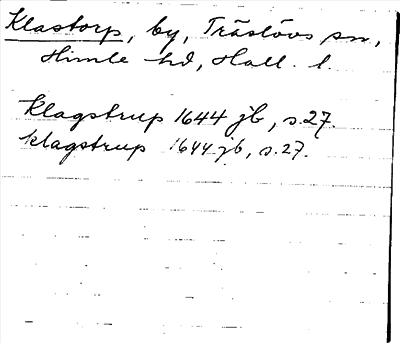 Klastorp, by, Träslövs sn,
Himle hd, Hall. l.
Klagstrup 1644 jb, s. 27.
klagstrup 1644 jb, s. 27.